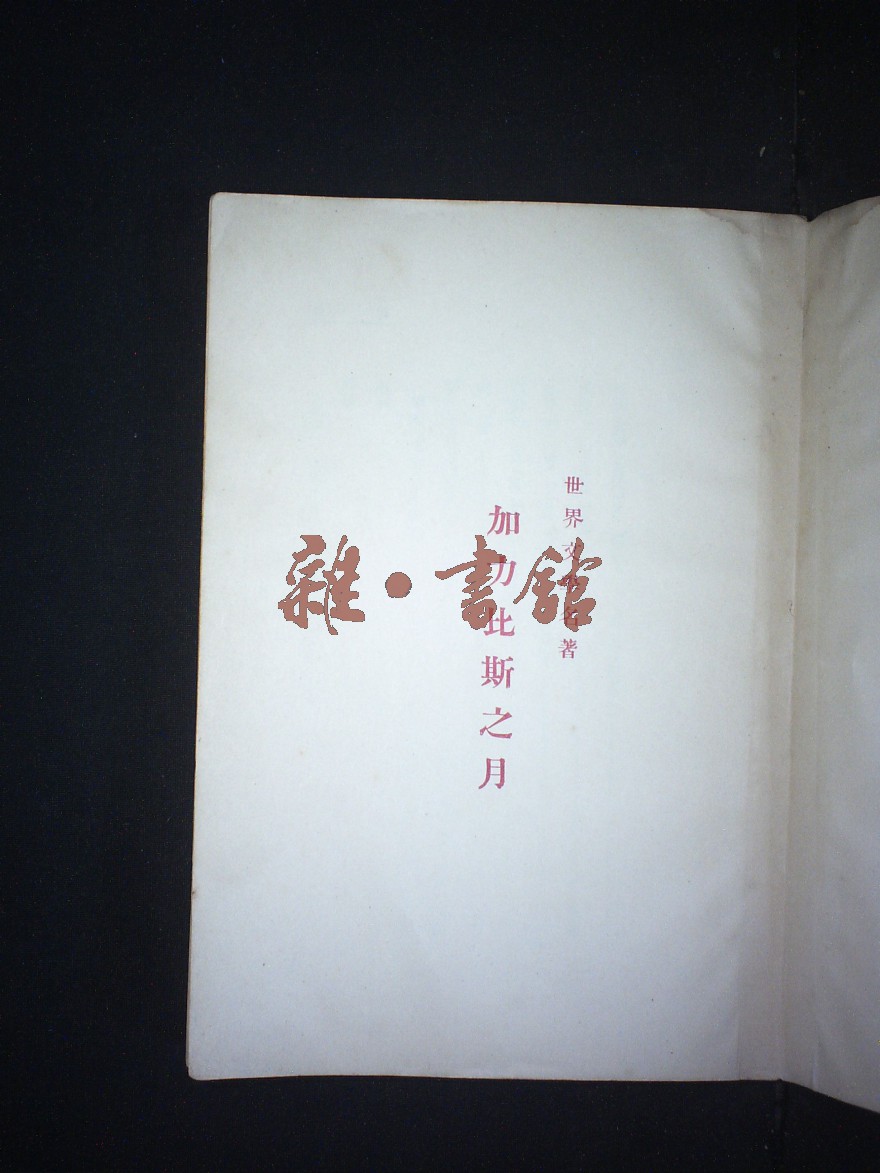 世界文學名著
加力比斯之月
雜·書館